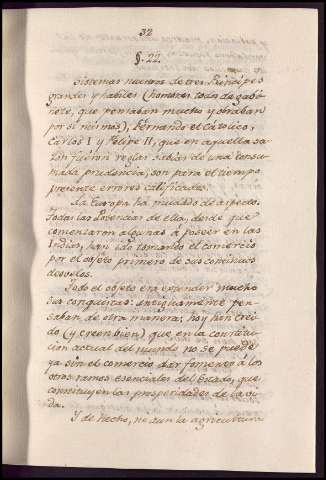 32
§. 22.
Sistemas nuestros de tres Principes
grandes y habiles (hombres todos de gabi-
nete, que pensaban mucho y obraban
por sí mismos), Fernando el Católico,
Carlos I y Felipe II, que en aquella sa-
zón fueron reglas sabias de una consu-
mada prudencia, son para el tiempo
presente errores calificados.
La Europa ha mudado de aspecto.
Todas las Potencias de ella, desde que
comenzaron algunas á poseer en las
Indias, han ido tomando el comercio
por el objeto primero de sus continuos
desvelos.
Todo el objeto era extender mucho
sus conquistas: antiguamente pen-
saban de otra manera; hoy han creí-
do (y creen bien) que en la constitu-
cion actual del mundo no se puede
ya sin el comercio dar fomento á los
otros ramos esenciales del Estado, que
constituyen las prosperidades de la vi-
da.
Y de hecho, no aun la agricultura